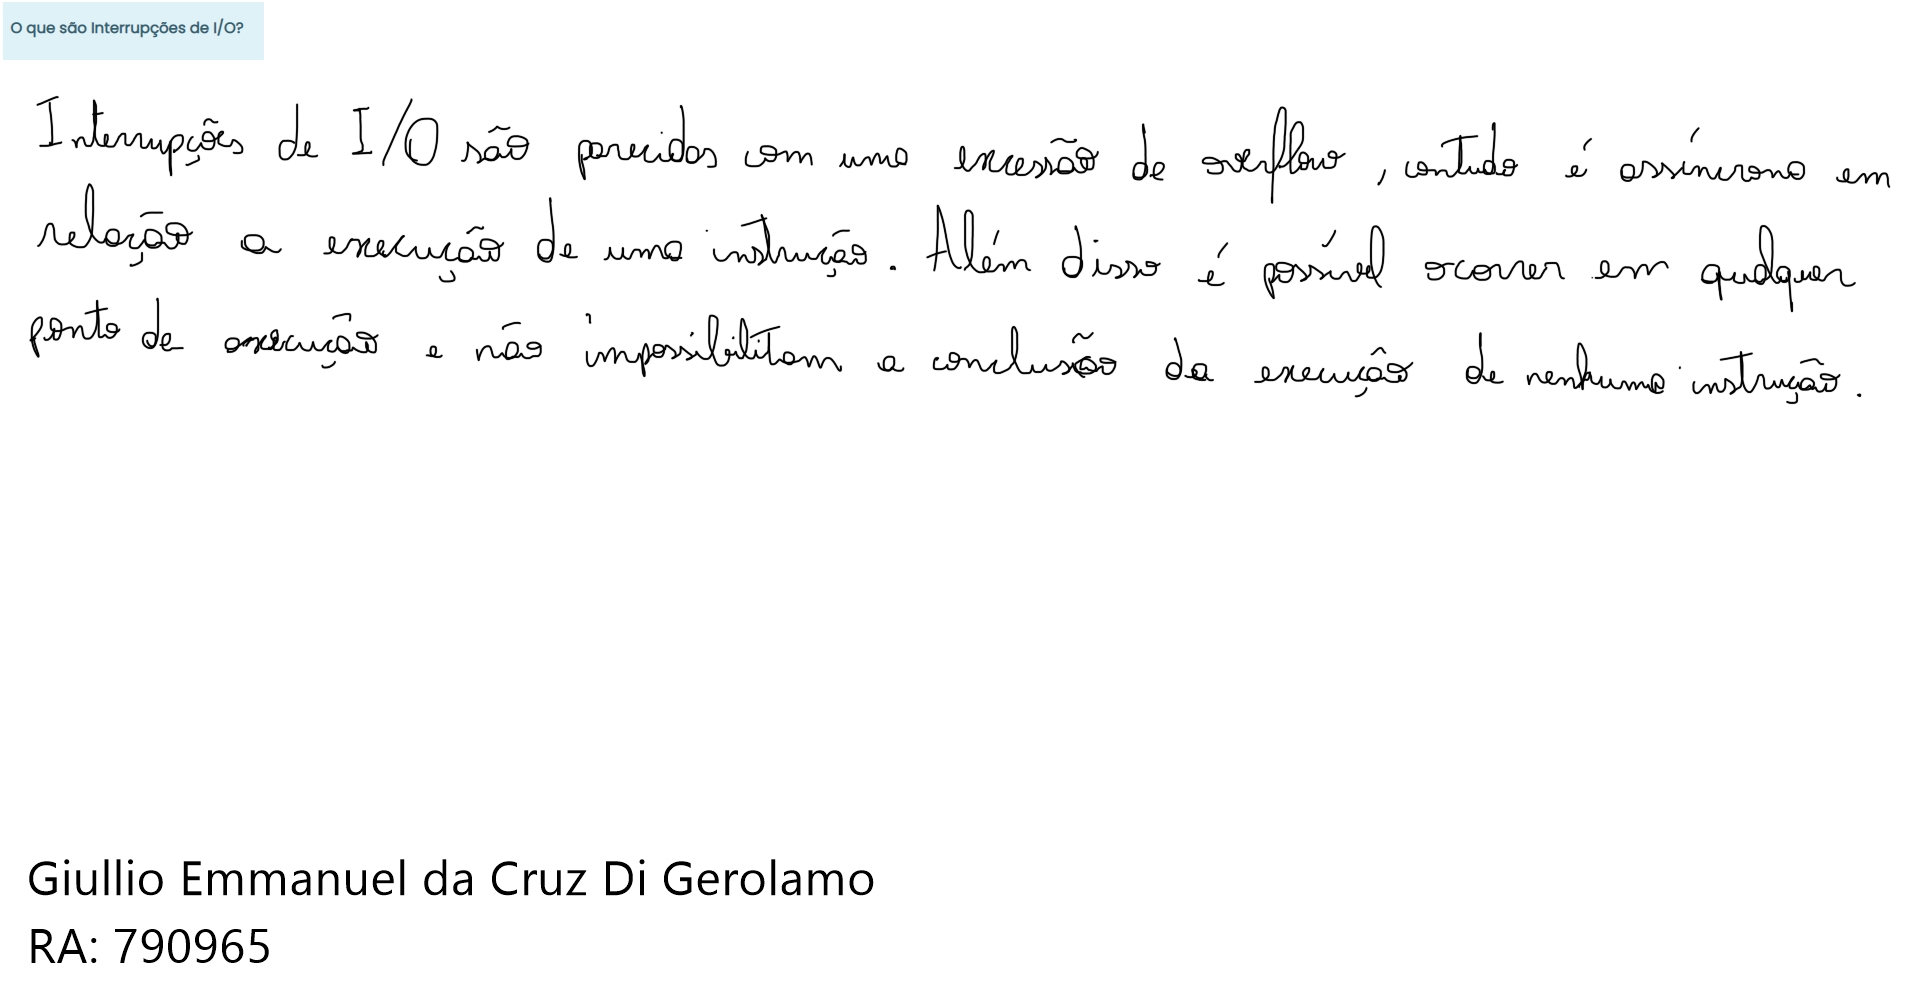 O que são Interrupções de I/O?
Interrupções de I/O são parecidas com uma excessão de overflow, contudo é assíncrono em
relação a execução de uma instrução. Além disso é possível ocorrer em qualquer
ponto de execução e não impossibilitam a conclusão da execução de nenhuma instrução.
Giullio Emmanuel da Cruz Di Gerolamo
RA: 790965